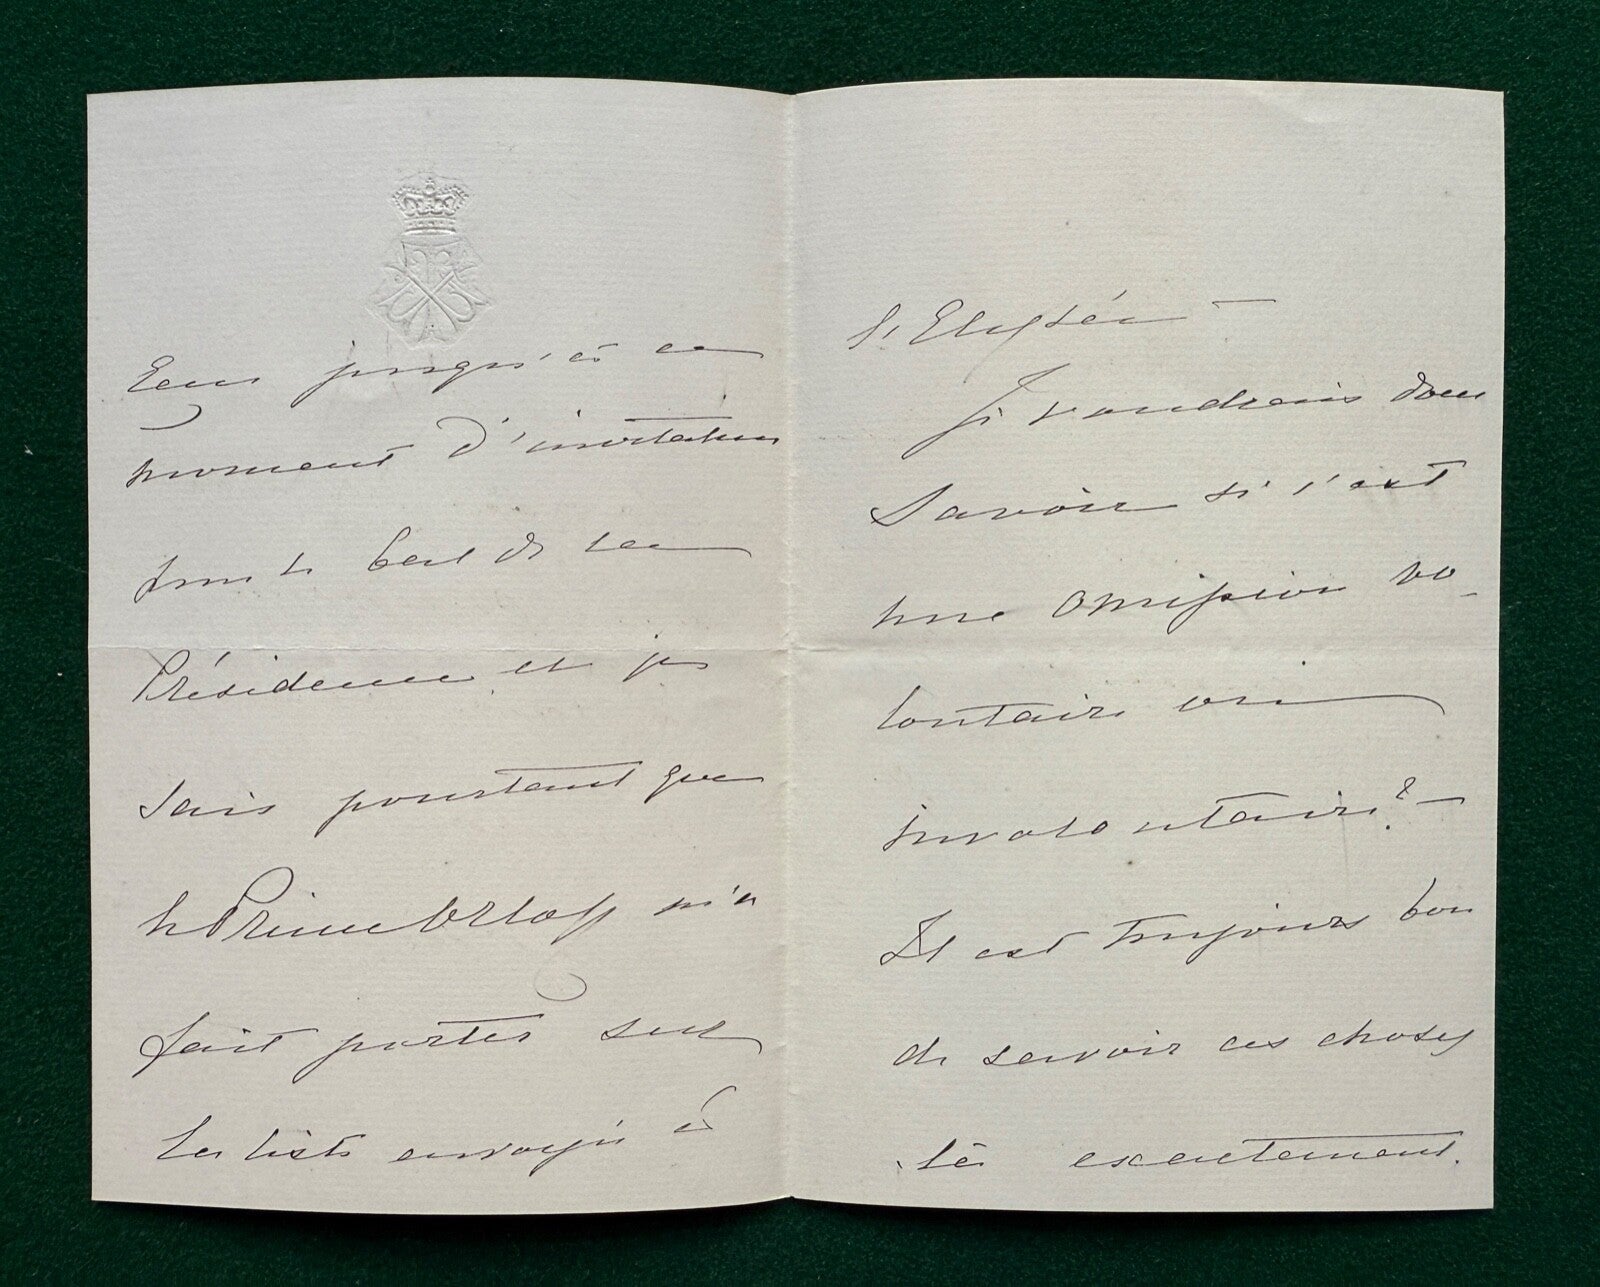 reçu jusqu'à ce
moment d'invitation
pour le bal de la
Présidence et je
sais pourtant que
le Prince Orloff m'a
fait porter sur
la liste envoyée à
l'Elysée —
Je voudrais donc
savoir si c'est
une omission vo-
lontaire ou
involontaire? —
Il est toujours bon
de savoir ces choses
là exactement.